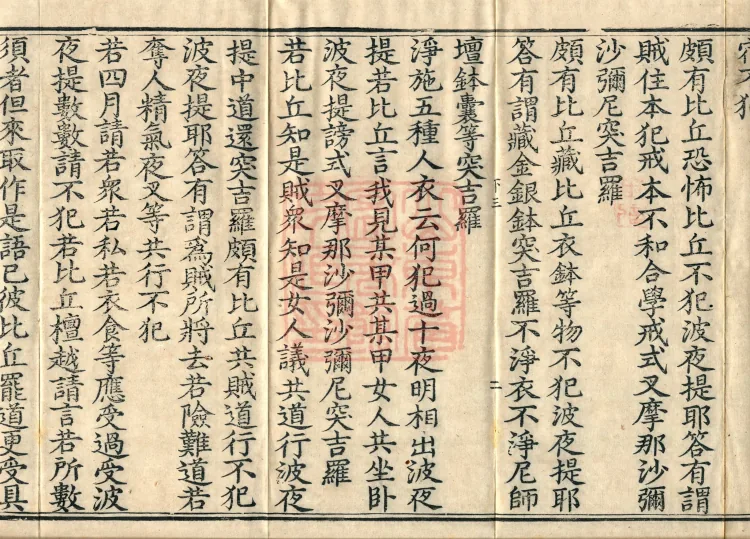 頗有比丘恐怖比丘不犯波夜提耶答有謂
賊住本犯戒本不和合學戒式叉摩那沙彌
沙彌尼突吉羅
頗有比丘藏比丘衣鉢等物不犯波夜提耶
答有謂藏金銀鉢突吉羅不淨衣不淨尼師
壇鉢囊等突吉羅
淨施五種人衣云何犯過十夜明相出波夜
提若比丘言我見某甲共某甲女人共坐卧
波夜提謗式叉摩那沙彌沙彌尼突吉羅
若比丘知是賊衆知是女人議共道行波夜
提中道還突吉羅頗有比丘共賊道行不犯
波夜提耶答有謂爲賊所將去若險難道若
奪人精氣夜叉等共行不犯
若四月請若衆若私若衣食等應受過受波
夜提數數請不犯若比丘檀越請言若所數
須者但來取作是語已彼比丘罷道更受具